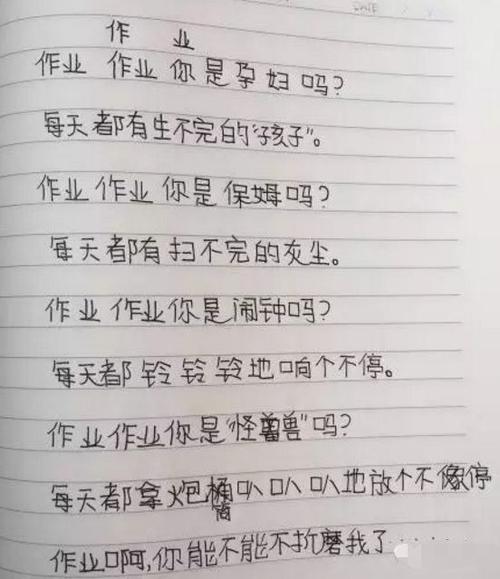 作 业
作业 作业你是孕妇吗?
每天都有生不完的“孩子”。
作业作业你是保姆吗?
每天都有扫不完的灰尘。
作业作业你是闹钟吗?
每天都铃铃铃地响个不停。
作业作业你是“怪兽”吗?
每天都拿火炮筒叭叭叭地放个不像停
作业啊,你能不能不折磨我了······